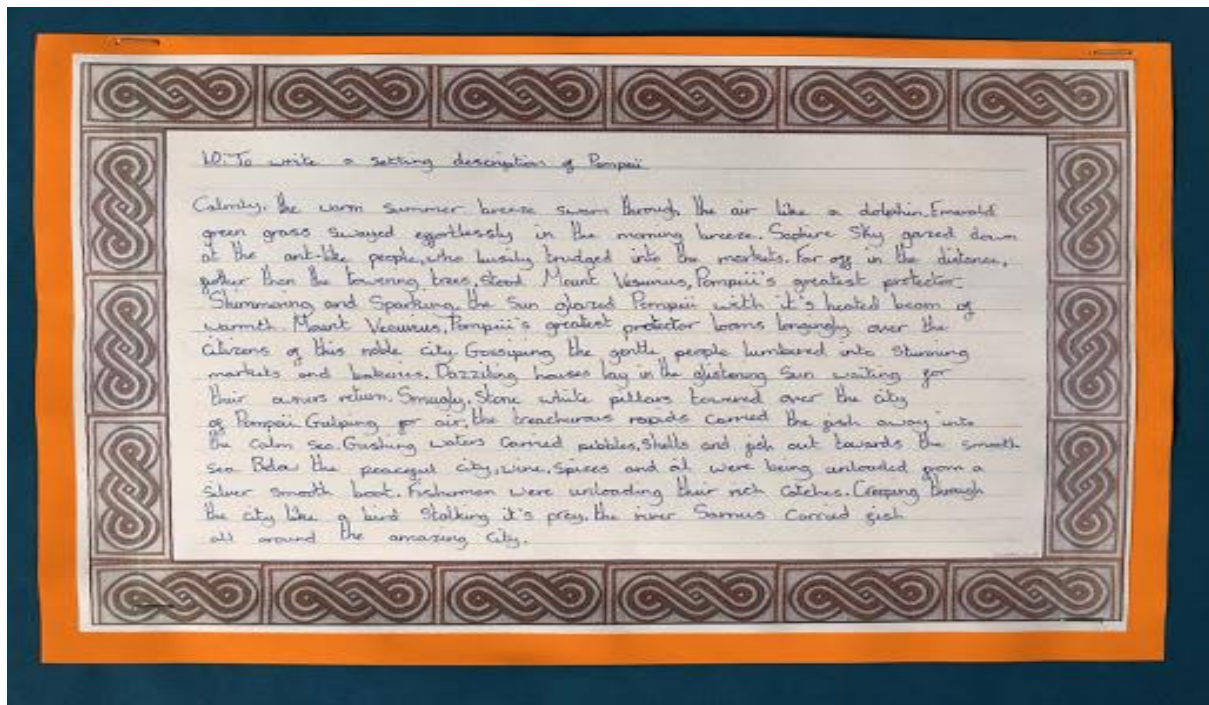 LO: To write a setting description of Pompeii
Calmly, the warm summer breeze swam through the air like a dolphin. Emerald
green grass swayed effortlessly in the morning breeze. Saphire Sky gazed down
at the ant-like people, who busily trudged into the markets. Far off in the distance,
further than the towering trees, stood Mount Vesuvius, Pompeii's greatest protector.
Shimmering and Sparking, the Sun glazed Pompeii with it's heated beam of
warmth Mount Vesuvius, Pompeii's greatest protector looms longingly over the
citizens of this noble city. Gossiping, the gentle people lumbered into stunning
markets and bakeries. Dazziling houses lay in the glistening Sun waiting for
their owners return. Smugly, Stone white pillars towered over the city
of Pompeii. Gulping for air, the treacherous rapids carried the fish away into
the calm sea. Gushing waters carried pebbles, shells and fish out towards the smooth
sea. Below the peaceful city, wine, spices and oil were being unloaded from a
silver smooth boat. Fishermen were unloading their rich catches. Creeping through
the city like a bird stalking it's prey, the river Sarnus carried fish
all around the amazing city.